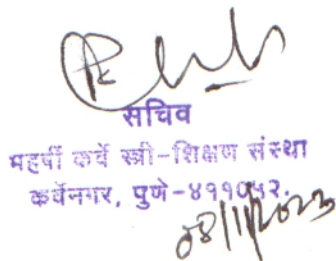 सचिव
महर्षी कर्वे स्त्री-शिक्षण संस्था
कर्वेनगर, पुणे-४११०५२.